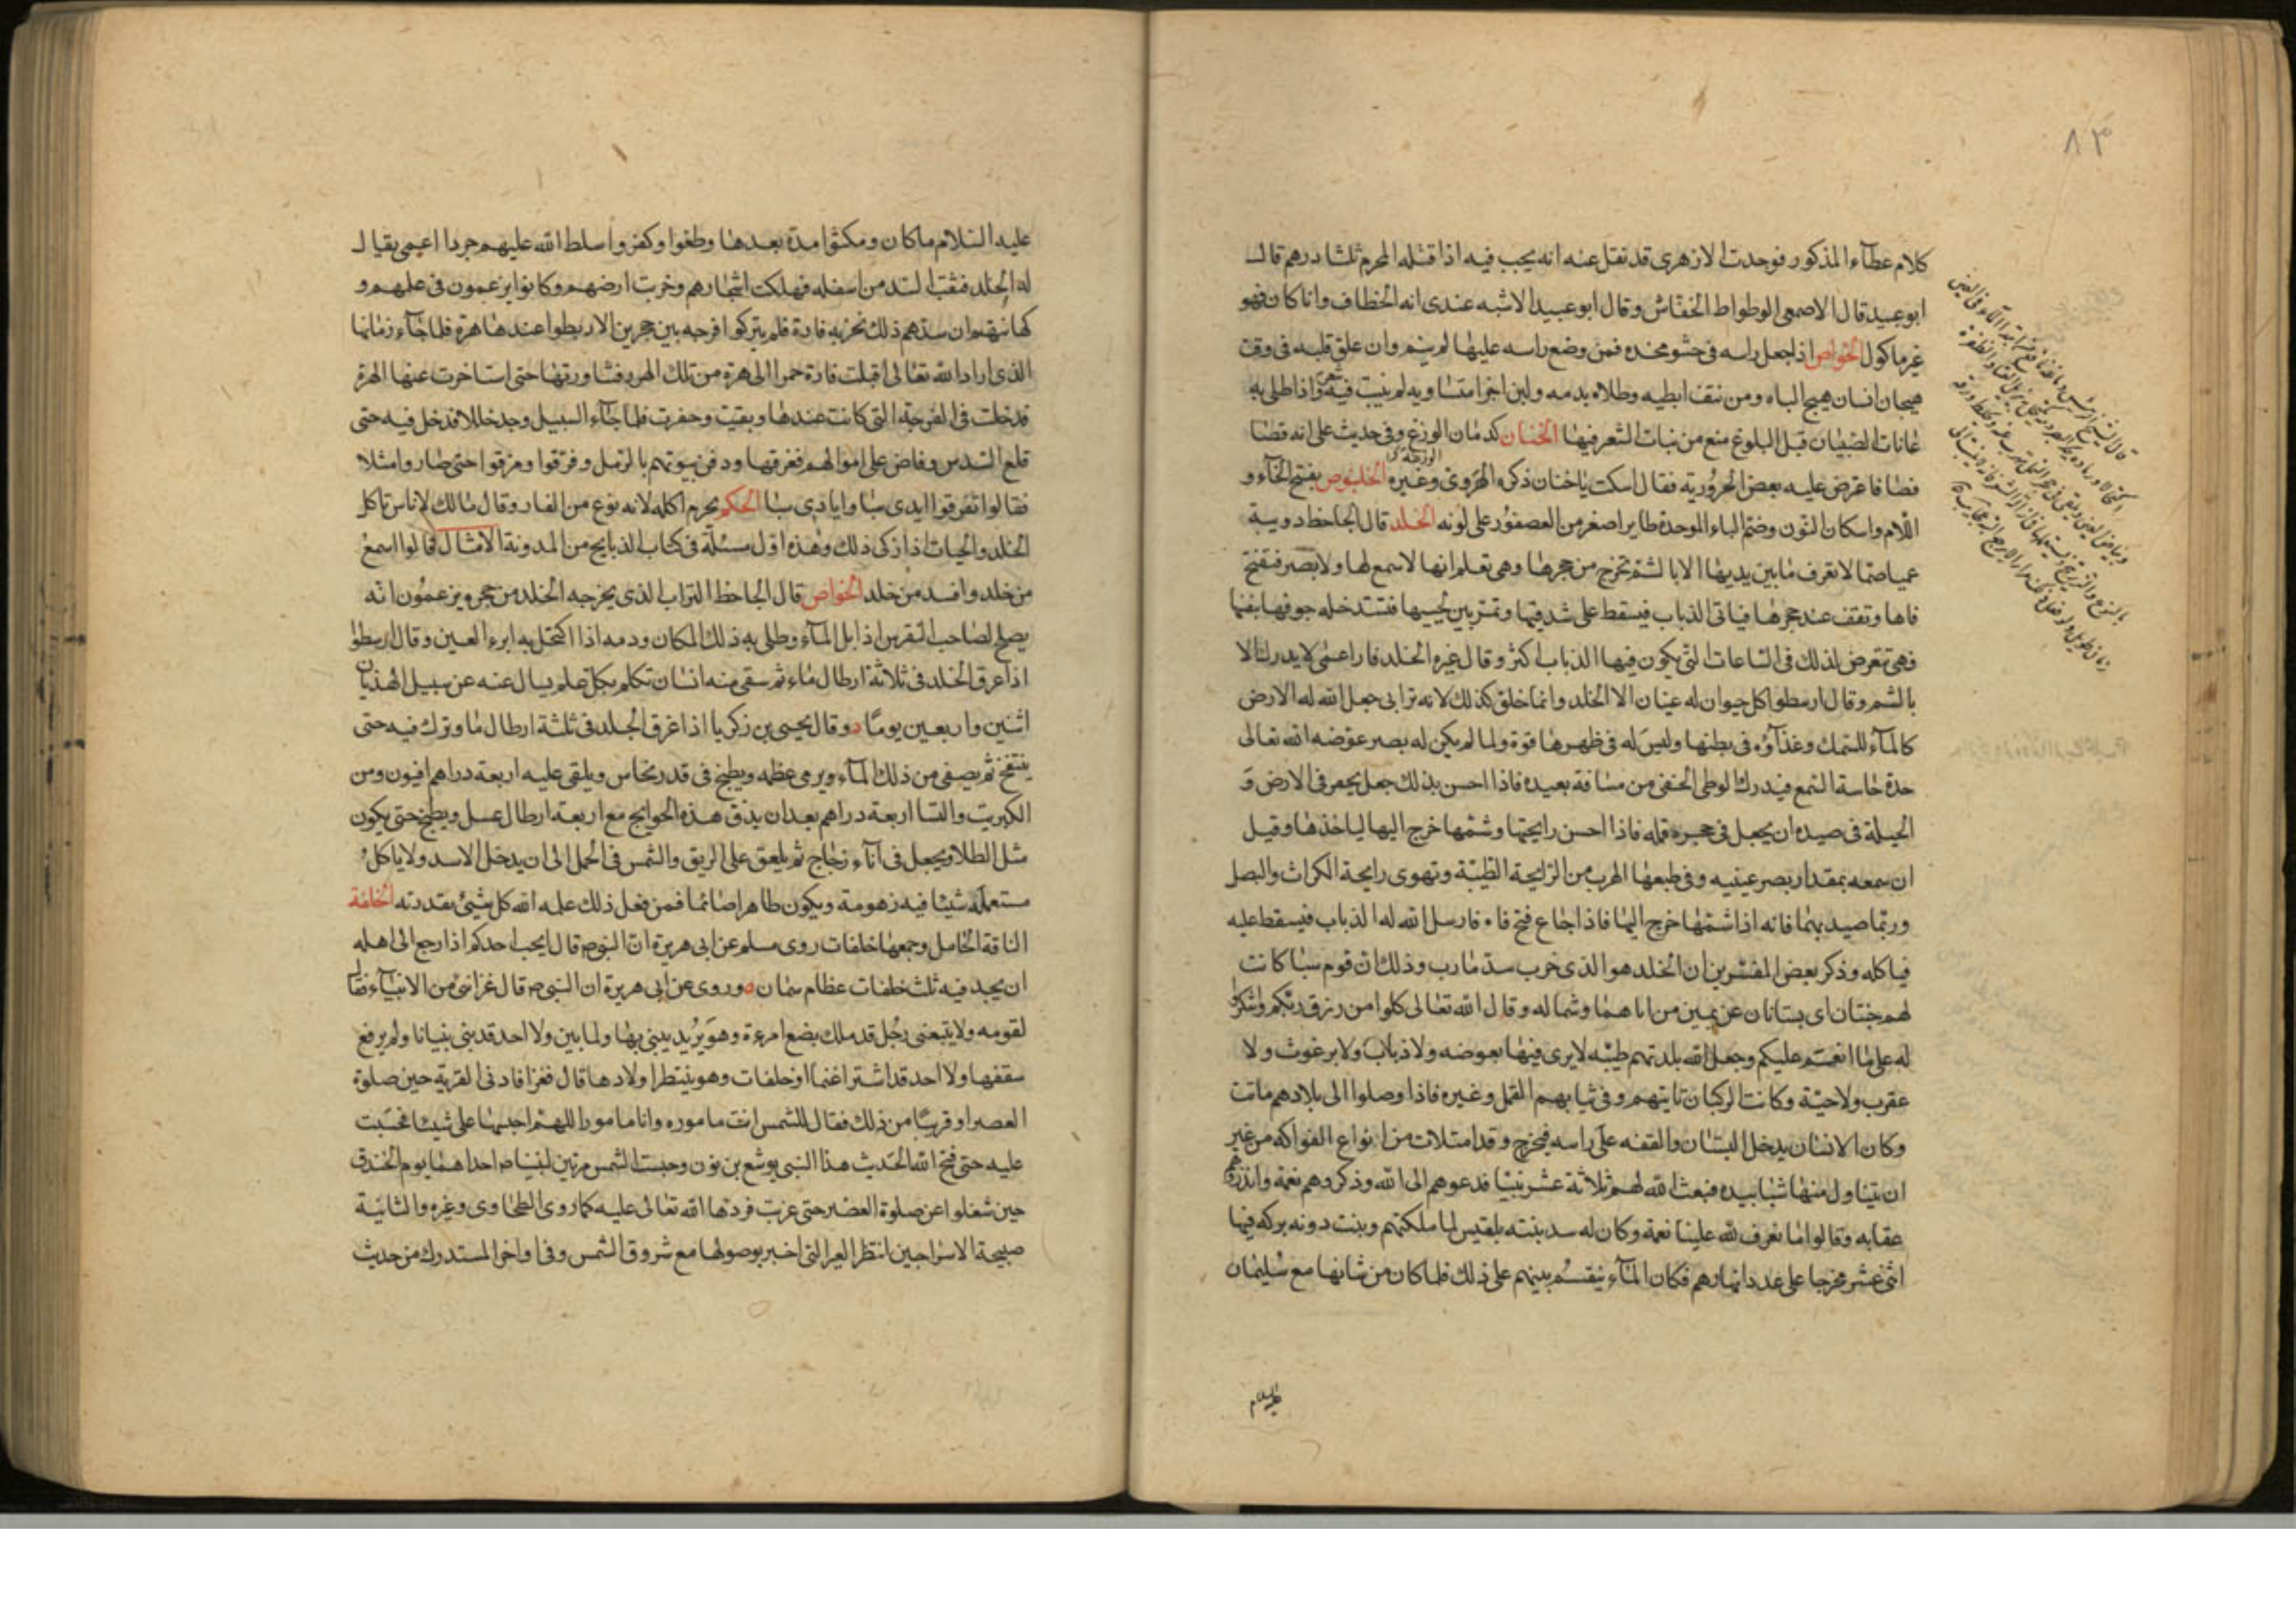 ٨٣
كلام عطآء المذكور فوجدت الازهرى قد نقل عنه انه يجب فيه اذا قتله المحرم ثلثا درهم قال
ابو عبيد قال الاصمعى الوطواط الخفاش وقال ابو عبيد الاشبه عندى انه الخطاف وانا كان فهو
غير ماكول الخواص اذا جعل راسه فى حشو مخده فمن وضع راسه عليها لم ينم وان علق قلبه فى وقت
هيجان انسان هيج الباه ومن نتف ابطيه وطلاه بدمه ولبن اجزا متساويه لم ينبت فيه شعر واذا طلى به
عانات الصبيان قبل البلوغ منع من نبات الشعر فيها الخنان كدمان الوزغ وفى حديث على انه قضا
قضا فاعترض عليه بعض الحرورية فقال اسكت ياخنان ذكره الهروى وغيره الخلنبوص بفتح الخآء و
اللام واسكان النون وضم الباء الموحدة طاير اصغر من العصفور على لونه الخلد قال الجاحظ دويبة
عميا صما لا تعرف مابين يديها الا بالشم تخرج من جحرها وهى تعلم انها لا سمع لها ولا بصر فتفتح
فاها وتقف عند جحرها فياتى الذباب فيسقط على شدقيها وتمر بين لحييها فتستدخله جوفها بنفسها
فهى تتعرض لذلك فى الساعات التى يكون فيها الذباب اكثر وقال غيره الخلد فار اعمى لا يدرك الا
بالشم وقال ارسطوا كل حيوان له عينان الا الخلد وانما خلق كذلك لانه ترابى جعل الله له الارض
كالمآء للسمك وغذآؤه فى بطنها وليس له فى ظهرها قوة ولما لم يكن له بصر عوضه الله تعالى
حدة حاسة السمع فيدرك الوطى الخفى من مسافة بعيده فاذا احسن بذلك جعل يحفر فى الارض و
الحيلة فى صيده ان يجعل فى جحره قمله فاذا احسن رايحتها وشمها خرج اليها لياخذها وقيل
ان سمعه بمقدار بصر عينيه وفى طبعها الهرب من الرايحة الطيبة وتهوى رايحة الكراث والبصل
وربما صيد بهما فانه اذا شمها خرج اليها فاذا جاع فتح فاه فارسل الله له الذباب فيسقط عليه
فياكله وذكر بعض المفسرين ان الخلد هو الذى خرب سد مارب وذلك ان قوم سبا كانت
لهم جنتان اى بستانان عن يمين من اتاهما وشماله وقال الله تعالى كلوا من رزق ربكم واشكروا
له على ما انعم عليكم وجعل الله بلدتهم طيبه لا يرى فيها بعوضه ولا ذباب ولا برغوث ولا
عقرب ولا حية وكانت الركبان تايتهم وفى ثيابهم القمل وغيره فاذا وصلوا الى بلادهم ماتت
وكان الانسان يدخل البستان والقفه على راسه فيخرج وقد امتلات من انواع الفواكه من غير
ان يتناول منها شيا بيده فبعث الله لهم ثلاثة عشر نبيا فدعوهم الى الله وذكروهم نعمة وانذروهم
عقابه وقالوا ما نعرف لله علينا نعمة وكان له سد بنته بلقيس لما ملكتهم وبنت دونه بركه فيها
اثنى عشر مخرجا على عدد انهارهم فكان المآء ينقسم بينهم على ذلك فلما كان من شانها مع سليمان
عليه السلام
عليه السلام ماكان ومكثوا مدة بعدها وطغوا وكفروا سلط الله عليهم جردا اعمى يقال
له الخلد فثقب السد من اسفله فهلكت اشجارهم وخربت ارضهم وكانوا يزعمون فى علمهم و
كهانتهم ان سدهم ذلك تخربه فارة فلم يتركوا فرجه بين حجرين الا ربطوا عندها هرة فلما جآء زمانها
الذى اراد الله تعالى اقبلت فارة حمرا الى هرة من تلك الهرر فشاورتها حتى استاخرت عنها الهرة
فدخلت فى الفرجة التى كانت عندها وبقيت وحفرت فلما جآء السيل وجد خللا فدخل فيه حتى
قلع السد من وفاض على اموالهم فغرقها ودفن بيوتهم بالرمل وفرقوا ومزقوا حتى صاروا مثلا
فقالوا تفرقوا ايدى سبا وايادى سبا الحكم يحرم اكله لانه نوع من الفار وقال مالك لا باس تاكل
الخلد والحيات اذا زكى ذلك وهذه اول مسئلة فى كتاب الذبايح من المدونة الامثال قالوا اسمع
من خلد وافسد من خلد الخواص قال الجاحظ التراب الذى يخرجه الخلد من جحره يزعمون انه
يصلح لصاحب النقرس اذا بل المآء وطلى به ذلك المكان ودمه اذا اكتحل به ابرء العين وقال ارسطوا
اذا غرق الخلد فى ثلاثة ارطال مآء ثم سقى منه انسان تكلم بكل علم يسال عنه عن سبيل الهذيان
اثنين واربعين يومًا وقال يحيى بن زكريا اذا غرق الخلد فى ثلثة ارطال ما وترك فيه حتى
ينتفخ ثم يصفى من ذلك المآء ويرمى عظمه ويطبخ فى قدر نحاس ويلقى عليه اربعة دراهم افيون ومن
الكبريت والسا اربعة دراهم بعد ان يدق هذه الحوايج مع اربعة ارطال عسل ويطبخ حتى يكون
مثل الطلا ويجعل فى انآء زجاج ثم يلعق على الريق والشمس فى الحمل الى ان يدخل الاسد ولا ياكل
مستعمله شيئا فيه زهومة ويكون طاهرا صائما فمن فعل ذلك علمه الله كل شئ بقدرته الخلفة
الناقة الحامل وجمعها خلفات روى مسلم عن ابى هريرة ان النبى م قال ايحب احدكم اذا رجع الى اهله
ان يجد فيه ثلث خلفات عظام سمان وروى عن ابى هريرة ان النبى م قال غزا نبى من الانبيآء فقال
لقومه ولا يتبعنى رجل قد ملك بضع امرءة وهو يريد يبنى بها ولما يبن ولا احد قد بنى بنيانا ولم يرفع
سقفها ولا احد قد اشترا غنما او خلفات وهو ينتظر اولادها قال فغزا فادنى القرية حين صلوة
العصر او قريبًا من ذلك فقال للشمس انت ماموره وانا مامور اللهم احبسها على شيئا فحبست
عليه حتى فتح الله الحديث هذا النبى يوشع بن نون وحبست الشمس مرتين لنبينا م احداهما يوم الخندق
حين شغلوا عن صلوة العصر حتى غربت فردتها الله تعالى عليه كما روى الطحاوى وغيره والثانية
صبيحة الاسراحين انتظر العير التى اخبر بوصولها مع شروق الشمس وفى اواخر المستدرك من حديث